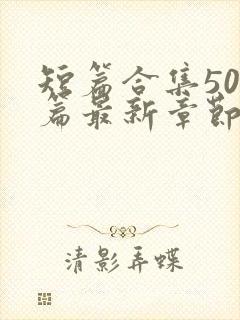 短篇合集50
篇最新章节
清影弄蝶